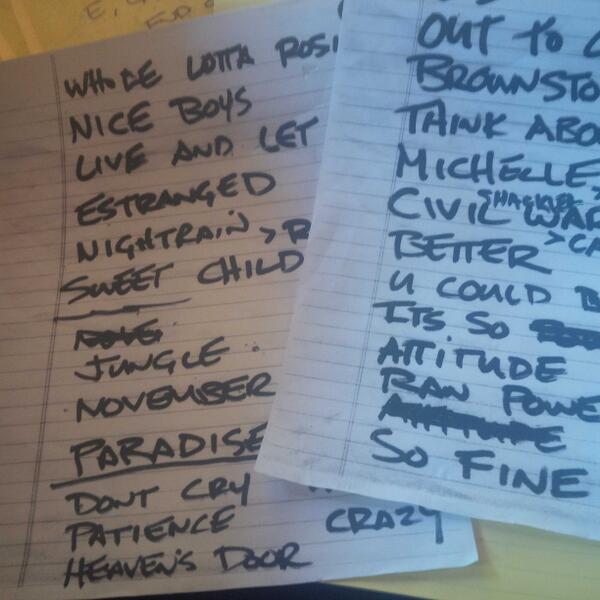 WHOLE LOTTA ROSI
NICE BOYS
LIVE AND LET
ESTRANGED
NIGHTRAIN > R
SWEET CHILD
JUNGLE
NOVEMBER
PARADISE
DONT CRY
PATIENCE CRAZY
HEAVEN'S DOOR
OUT TO
BROWNSTO
THINK ABO
MICHELLE
SHACKLE
CIVIL WAR
BETTER > CA
U COULD B
ITS SO
ATTITUDE
RAW POWE
ATTITUDE
SO FINE